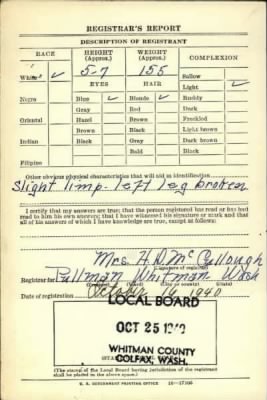 REGISTRAR'S REPORT
DESCRIPTION OF REGISTRANT
RACE HEIGHT (Approx.) WEIGHT (Approx.) COMPLEXION
5-7 155 Sallow
White ✓ EYES HAIR Light ✓
Negro Blue ✓ Blonde ✓ Ruddy
Gray Red Dark
Oriental Hazel Brown Freckled
Brown Black Light brown
Indian Black Gray Dark brown
Bald Black
Filipino
Other obvious physical characteristics that will aid in identification
Slight limp - left leg broken
I certify that my answers are true; that the person registered has read or has had
read to him his own answers; that I have witnessed his signature or mark and that
all of his answers of which I have knowledge are true, except as follows:
Mrs. H. D. McCullough
(Signature of registrar)
Registrar for Pullman Whitman Wash
(City or county) (State)
Date of registration October 16 1940
LOCAL BOARD
OCT 25 1940
WHITMAN COUNTY
COLFAX, WASH.
(The stamp of the Local Board having jurisdiction of the registrant
shall be placed in the above space.)
U. S. GOVERNMENT PRINTING OFFICE